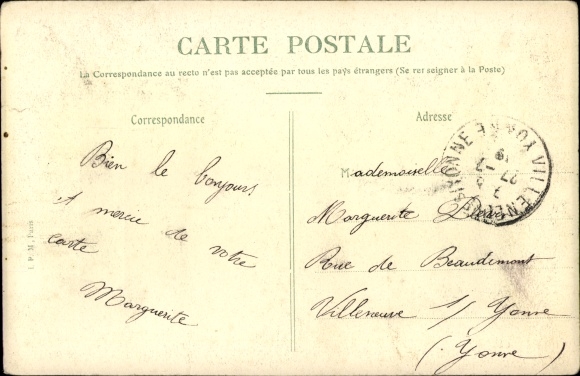 CARTE POSTALE
La Correspondance au recto n'est pas acceptée par tous les pays étrangers (Se renseigner à la Poste)
Correspondance
Bien le bonjour
merci de votre
carte
Marguerite
I. P. M., Paris
Adresse
Mademoiselle
Marguerite
Rue de Beaudemont
Villeneuve s/ Yonne
(Yonne)
YONNE